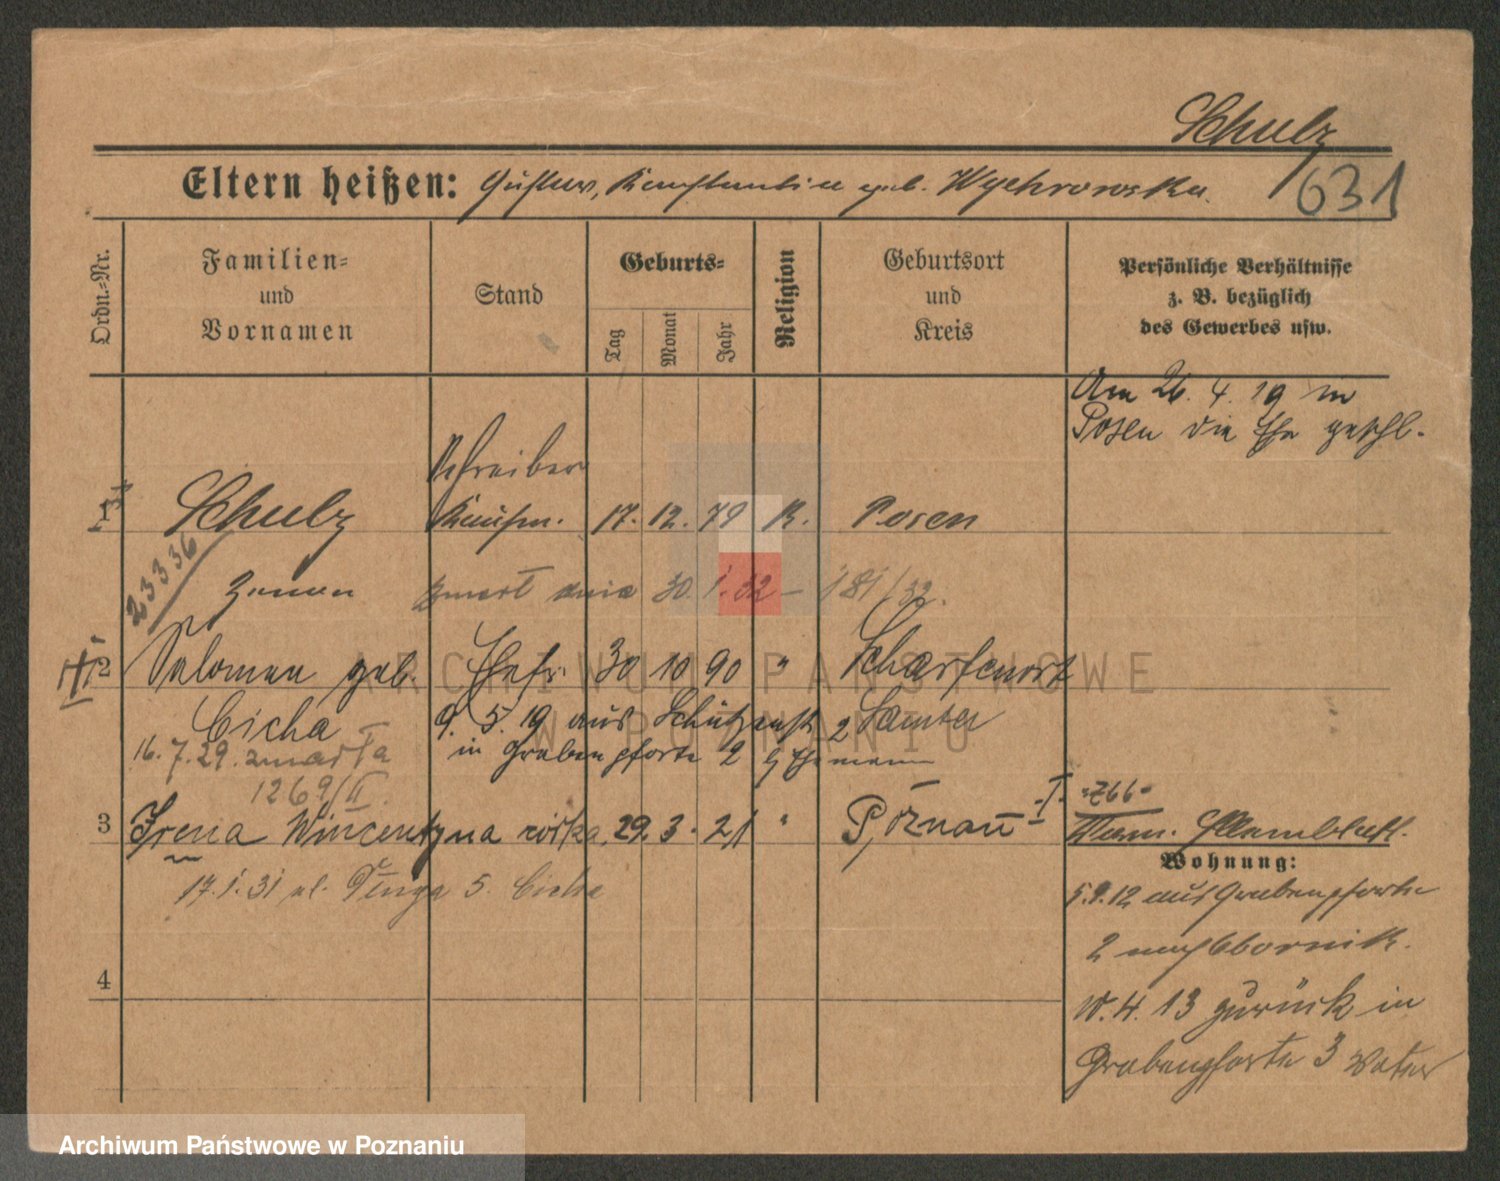 Schulz
Eltern heißen: Gustav, Konstantine geb. Wychrowska.
631
Ordn.=Nr.
Familien=
und
Vornamen
Stand
Geburts=
Tag
Monat
Jahr
Religion
Geburtsort
und
Kreis
Persönliche Verhältnisse
z. B. bezüglich
des Gewerbes usw.
Am 26. 4. 19 in
Posen die Ehe geschl.
Schreiber
1 Schulz Kaufm. 17. 12. 79 K. Posen
23336
Zenon zmarł dnia 30. 1. 32 – 181/32.
2 Salomea geb. Ehefr. 30 10 90 " Scharfenort
Cicha 9. 5. 19 aus Schützenstr. 2 Samter
in Grabenpforte 2 z. Ehemann
16. 7. 29. zmarła
1269/II.
3 Irena Wincentyna córka. 29. 3. 21 " Poznań
17. 1. 31 ul. Długa 5. Cicha
Wohnung:
5.9.12 aus Grabenpforte
2 nach Obornik.
10. 4. 13 zurück in
Grabenpforte 3 Vater
4
ARCHIWUM PAŃSTWOWE
W POZNANIU
Archiwum Państwowe w Poznaniu